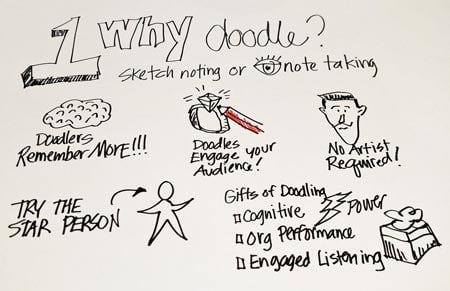 1 Why doodle?
Sketch noting or note taking
Doodlers
Remember More!!!
Doodles
Engage your
Audience!
No Artist
Required!
TRY THE
STAR PERSON
Gifts of Doodling
Cognitive Power
Org Performance
Engaged Listening